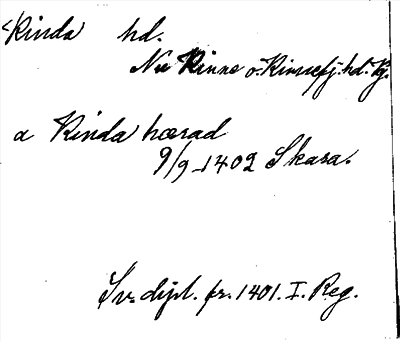 Kinda hd.
Nu Kinne o. Kinnefj. hd. Kg.
a Kinda hærad
9/9 1402 Skara.
Sv. dipl. fr. 1401. I. Reg.